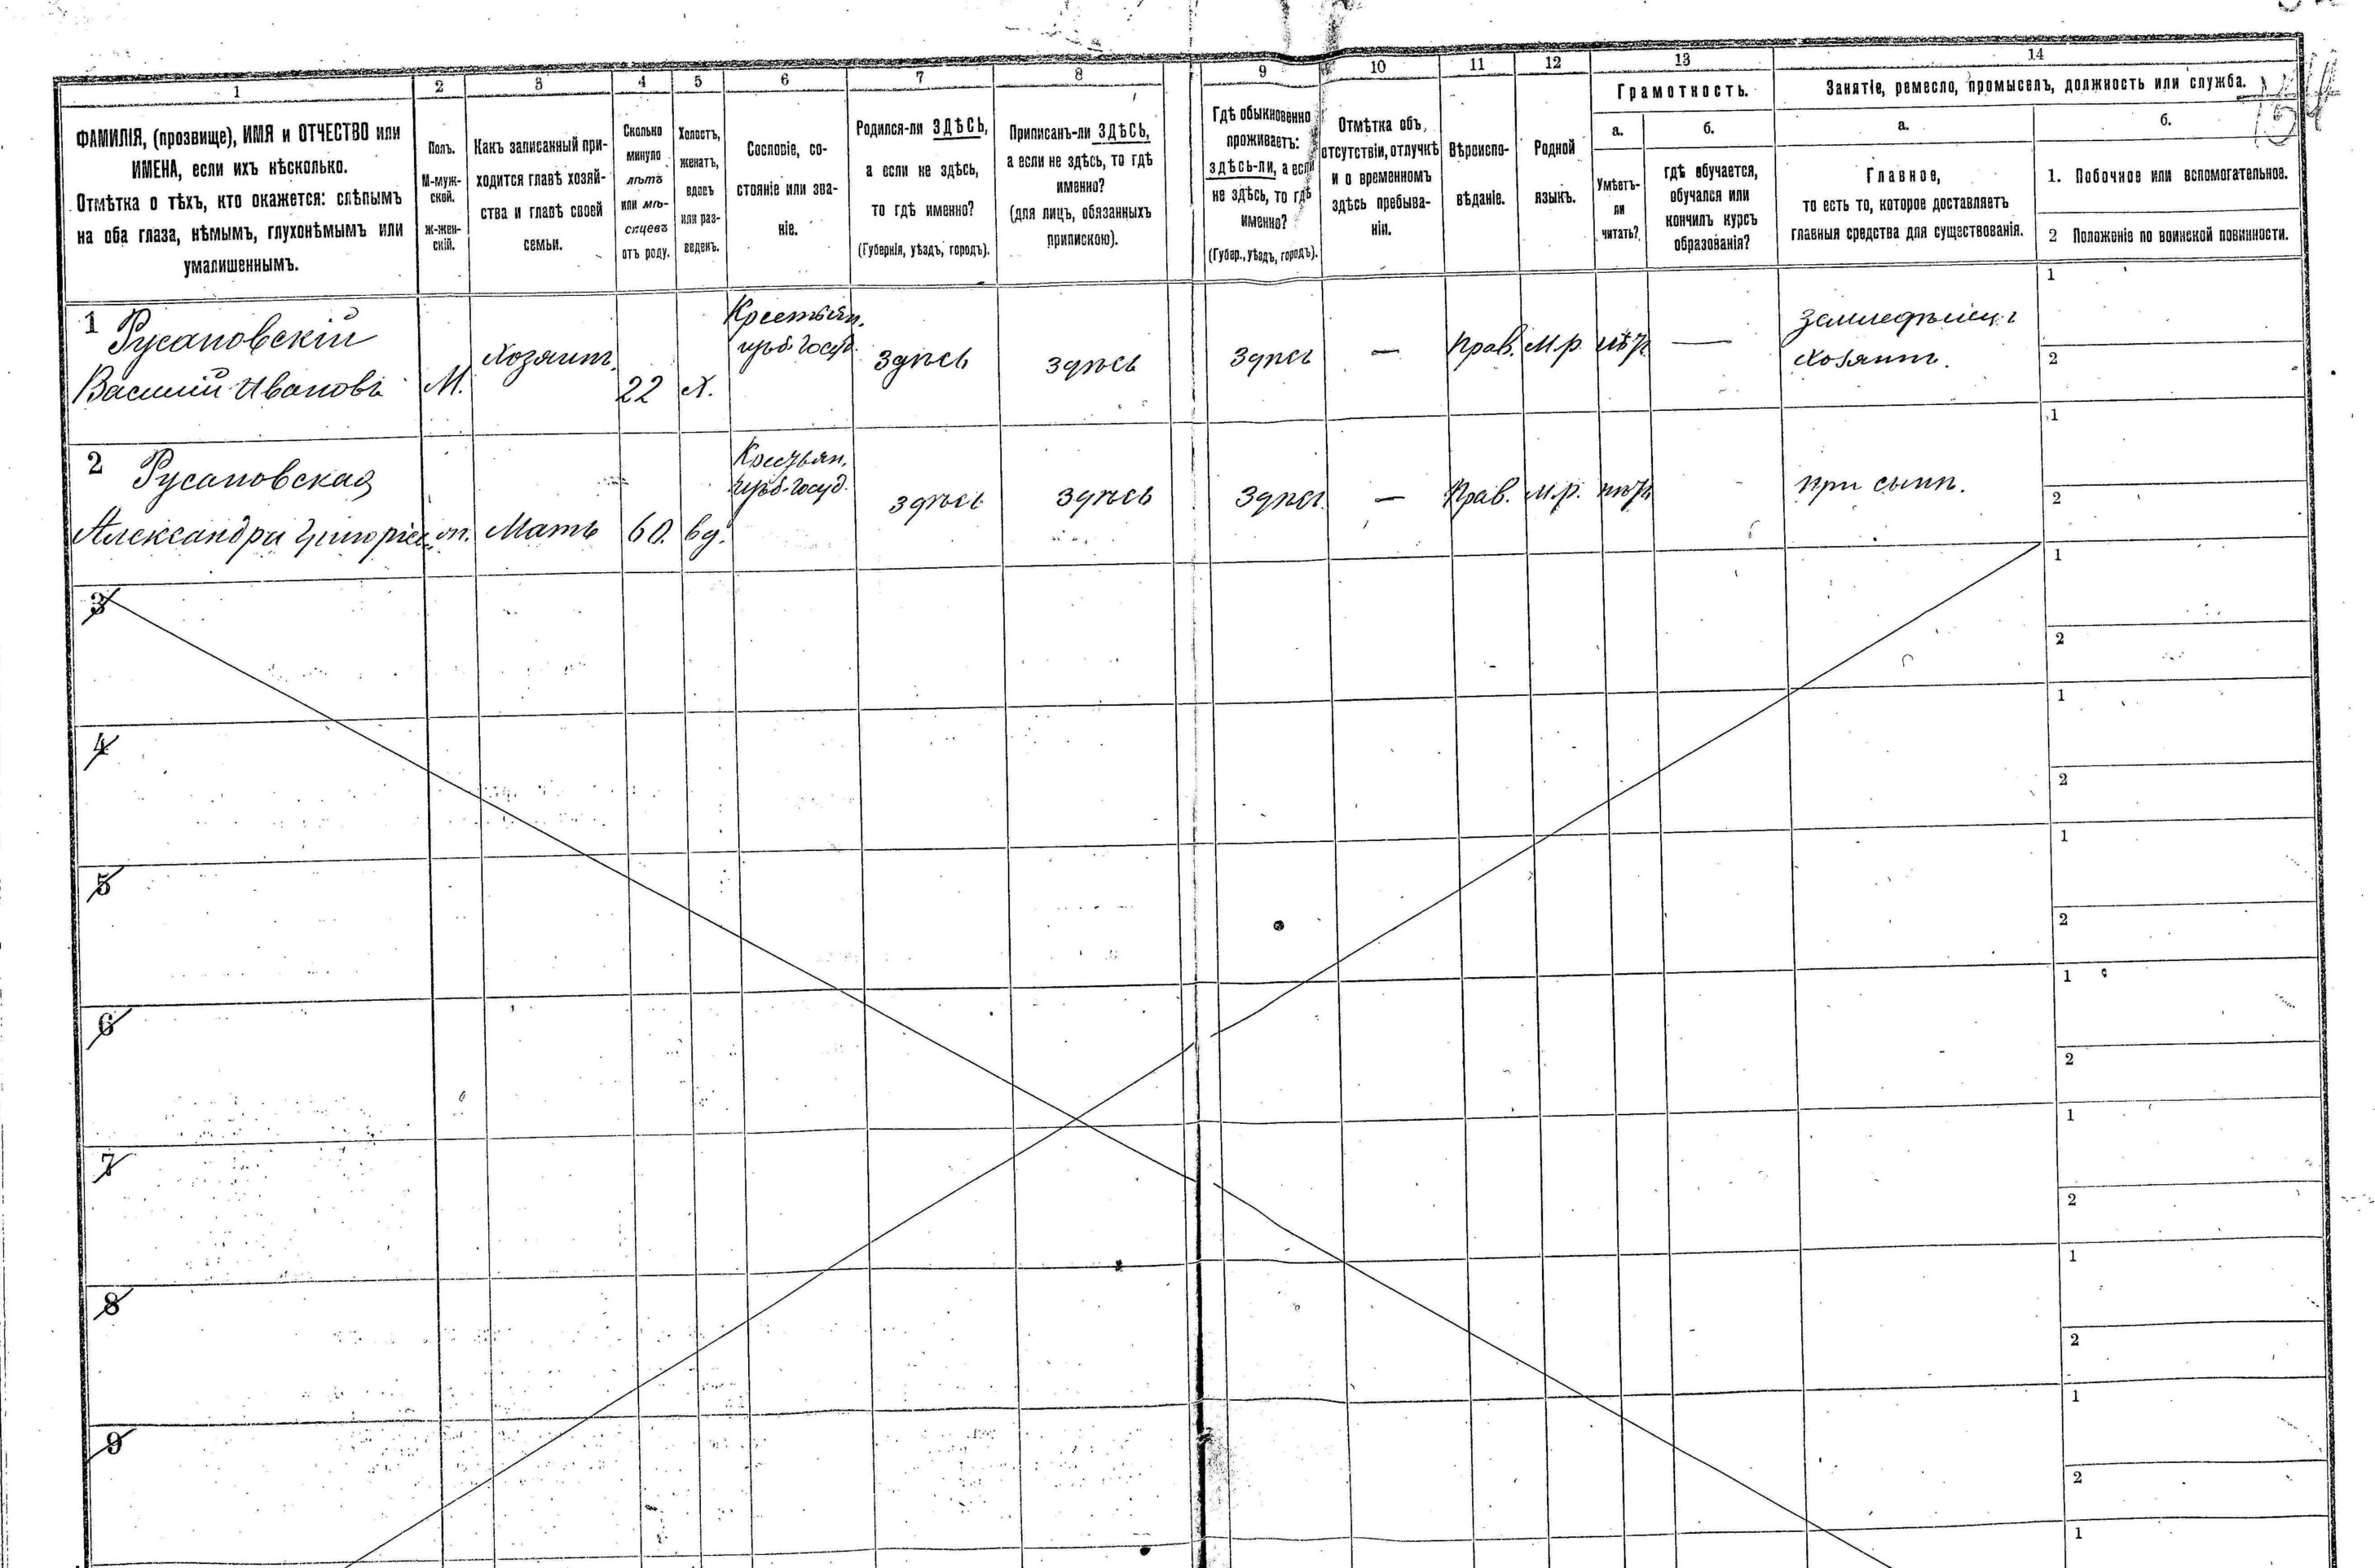 1
2
3
4
5
6
7
8
9
10
11
12
13
14
ФАМИЛІЯ, (прозвище), ИМЯ и ОТЧЕСТВО или
ИМЕНА, если ихъ нѣсколько.
Отмѣтка о тѣхъ, кто окажется: слѣпымъ
на оба глаза, нѣмымъ, глухонѣмымъ или
умалишеннымъ.
Полъ.
М-муж-
ской.
ж-жен-
скій.
Какъ записанный при-
ходится главѣ хозяй-
ства и главѣ своей
семьи.
Сколько
минуло
лѣтъ
или мѣ-
сяцевъ
отъ роду.
Холостъ,
женатъ,
вдовъ
или раз-
веденъ.
Сословіе, со-
стояніе или зва-
ніе.
Родился-ли ЗДѢСЬ,
а если не здѣсь,
то гдѣ именно?
(Губернія, уѣздъ, городъ).
Приписанъ-ли ЗДѢСЬ,
а если не здѣсь, то гдѣ
именно?
(для лицъ, обязанныхъ
припискою).
Гдѣ обыкновенно
проживаетъ:
ЗДѢСЬ-ЛИ, а если
не здѣсь, то гдѣ
именно?
(Губер., уѣздъ, городъ).
Отмѣтка объ
отсутствіи, отлучкѣ
и о временномъ
здѣсь пребыва-
ніи.
Вѣроиспо-
вѣданіе.
Родной
языкъ.
Грамотность.
а.
б.
Умѣетъ-
ли
читать?
гдѣ обучается,
обучался или
кончилъ курсъ
образованія?
Занятіе, ремесло, промыселъ, должность или служба.
а.
б.
Главное,
то есть то, которое доставляетъ
главныя средства для существованія.
1. Побочное или вспомогательное.
2 Положеніе по воинской повинности.
1
Русановскій
Василій Ивановъ
М.
Хозяинъ.
22
Х.
Крестьян.
здѣсь
здѣсь
здѣсь
—
Прав.
М.р
нѣтъ
—
земледѣлецъ
хозяинъ.
1
2
2
Русановская
Александра
Мать
60.
вд.
Крестьян.
здѣсь
здѣсь
здѣсь.
—
Прав.
М.р.
нѣтъ
при сынѣ.
1
2
3
1
2
4
1
2
5
1
2
6
1
2
7
1
2
8
1
2
9
1
2
1